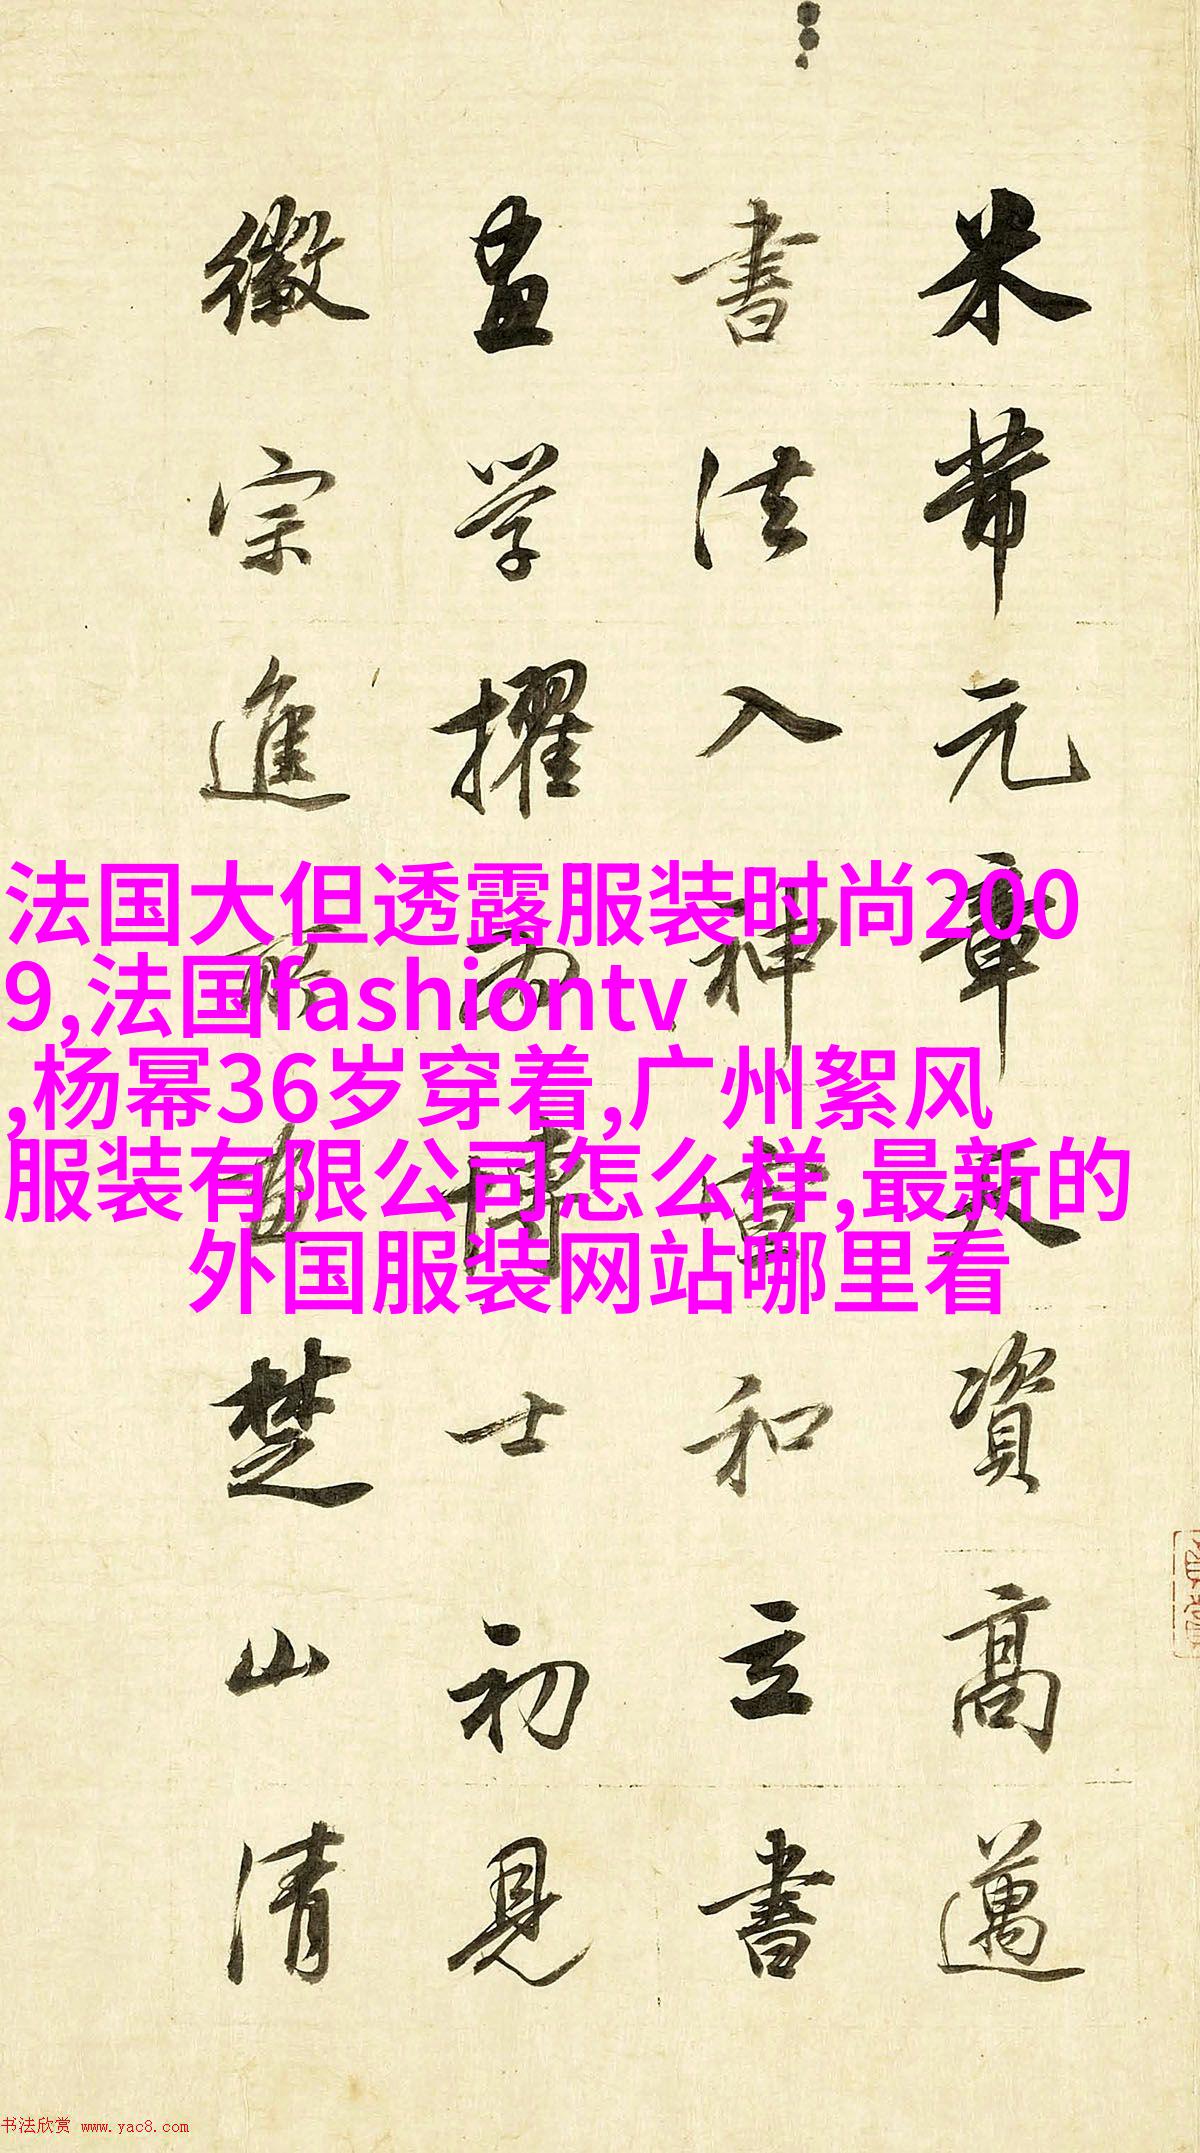 米芾元章天資高邁
書法入神宣和立書
畫學擢為博士初見
徽宗進所畫楚山清
法国大但透露服装时尚200
9,法国fashiontv
,杨幂36岁穿着,广州絮风
服装有限公司怎么样,最新的
外国服装网站哪里看
书法欣赏 www.yac8.com